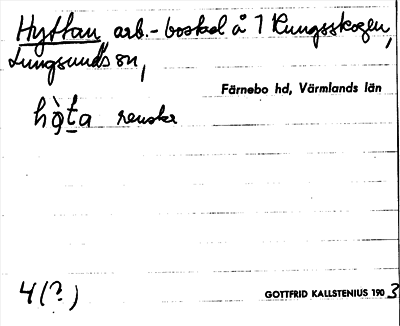 Hyttan arb.-bostad å 1 Kungsskogen,
Lungsunds sn,
Färnebo hd, Värmlands län
hỳta
4(?)
GOTTFRID KALLSTENIUS 1903